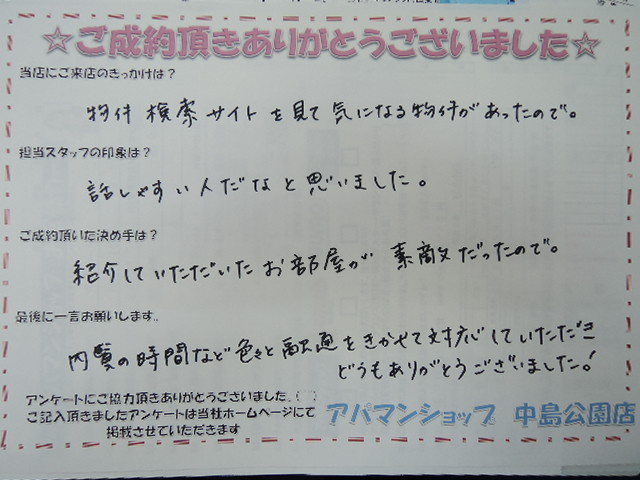 ☆ご成約頂きありがとうございました☆
当店にご来店のきっかけは？
物件検索サイトを見て気になる物件があったので。
担当スタッフの印象は？
話しやすい人だなと思いました。
ご成約頂いた決め手は？
紹介していただいたお部屋が素敵だったので。
最後に一言お願いします。
内覧の時間など色々と融通をきかせて対応していただき
どうもありがとうございました！
アンケートにご協力頂きありがとうございました。
ご記入頂きましたアンケートは当社ホームページにて
掲載させていただきます
アパマンショップ 中島公園店